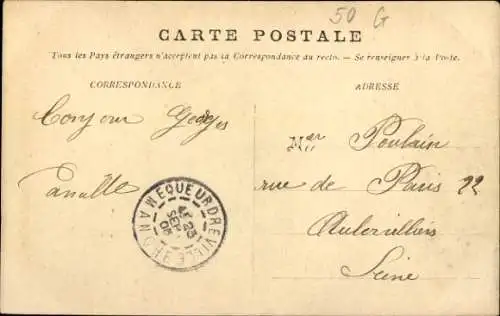 50 G
CARTE POSTALE
Tous les Pays étrangers n'acceptent pas la Correspondance au recto. — Se renseigner à la Poste.
CORRESPONDANCE
ADRESSE
Bonjour Georges
Poulain
rue de Paris 22
Aubervilliers
Seine
EQUEURDREVILLE
MANCHE
23
SEPT
05